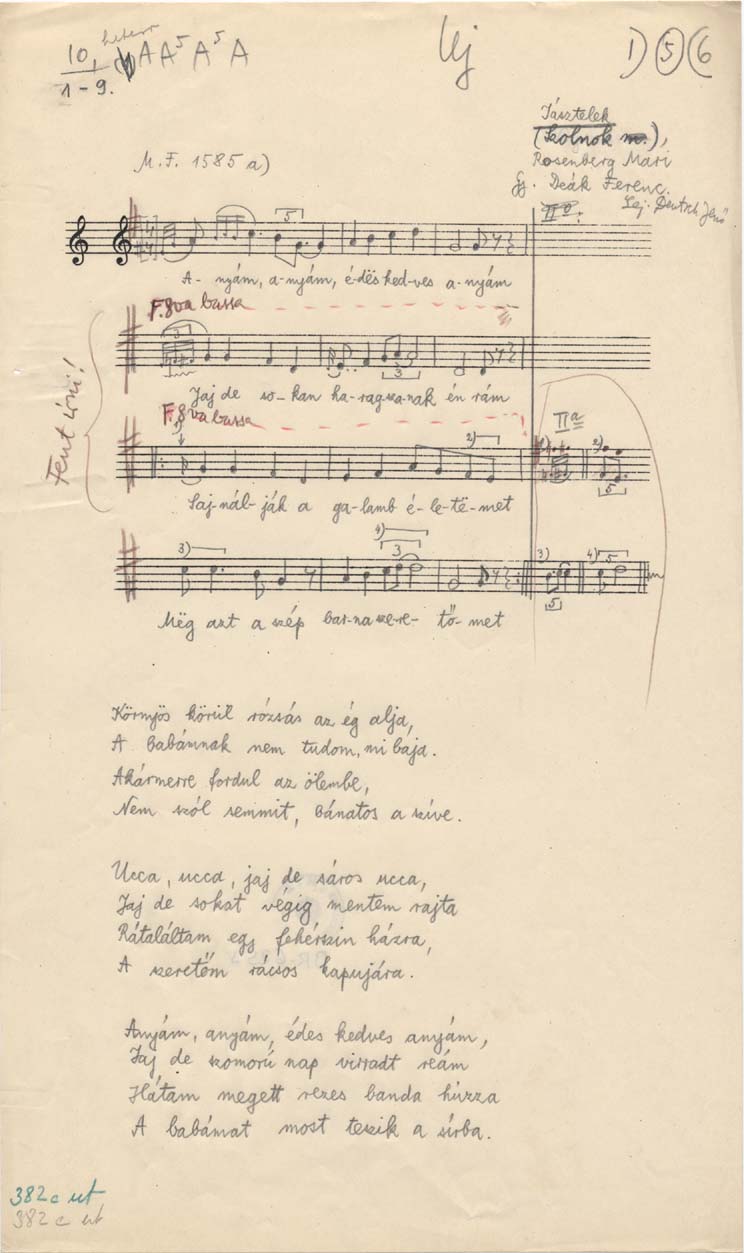 10, heterom A A⁵ A⁵ A
1-9.
Uj
1) 5 (6
Jásztelek
(Szolnok m.),
Rosenberg Mari
gy. Deák Ferenc.
Lej. Deutsch Jenő
M.F. 1585 a)
II⁰.
A- nyám, a-nyám, é-dës ked-ves a-nyám
F. 8va bassa
Fent írni!
Jaj de so-kan ha-ragsza-nak én rám
F. 8va bassa
IIª
Saj-nál-ják a ga-lamb é-le-të-met
Mëg azt a szép bar-na sze-re-tő-met
Környös körül rózsás az ég alja,
A babámnak nem tudom, mi baja.
Akármerre fordul az ölembe,
Nem szól semmit, bánatos a szíve.
Ucca, ucca, jaj de sáros ucca,
Jaj de sokat végig mentem rajta
Rátaláltam egy fehérszin házra,
A szeretőm rácsos kapujára.
Anyám, anyám, édes kedves anyám,
Jaj de szomorú nap virradt reám
Hátam megett rezes banda húzza
A babámat most teszik a sírba.
382 c ut
382 c ut